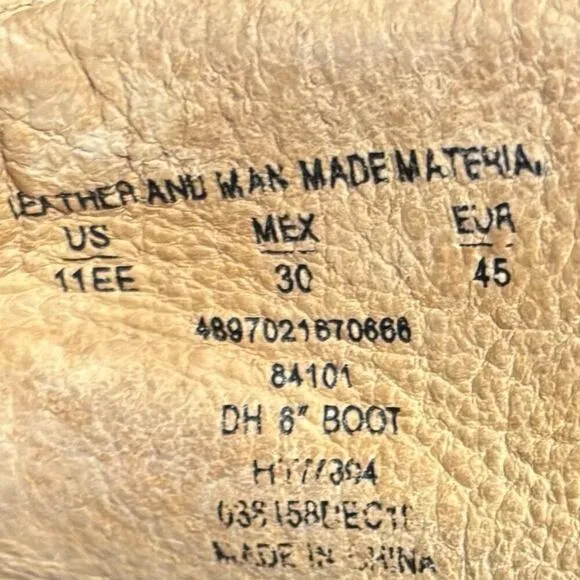 LEATHER AND MAN MADE MATERIAL
US MEX EUR
11EE 30 45
4897021670666
84101
DH 6" BOOT
MADE IN CHINA